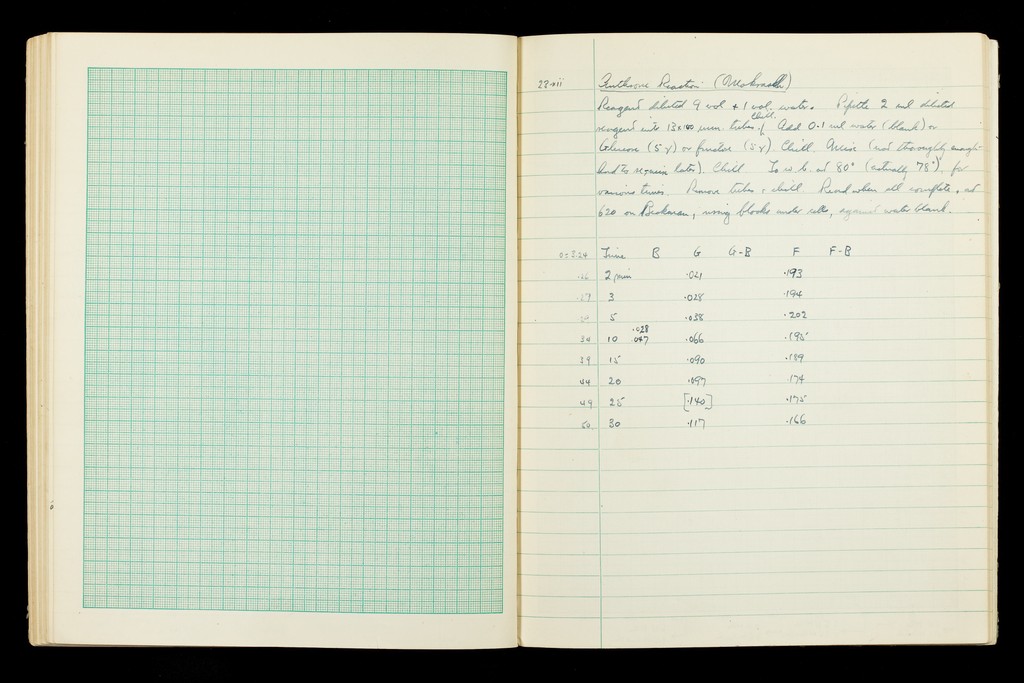 22·xii Anthrone Reaction
Reagent diluted 9 vol + 1 vol water. Pipette 2 ml diluted
reagent into 13 x 100 mm. tubes. Chill. Add 0.1 ml water (blank) or
Glucose (5 γ) or fructose (5 γ). Chill. Mix (not thoroughly enough -
had to remix later). Chill. To w.b. at 80° (actually 78°) for
various times. Remove tubes & chill. Read when all complete, at
620 on Beckman, using blocks under cells, against water blank.
0 = 3.24 Time B G G-B F F-B
.26 2 min .021 .193
.27 3 .028 .194
5 .038 .202
.028
34 10 .047 .066 .195
39 15 .090 .189
44 20 .097 .174
49 25 [.140] .175
54 30 .117 .166